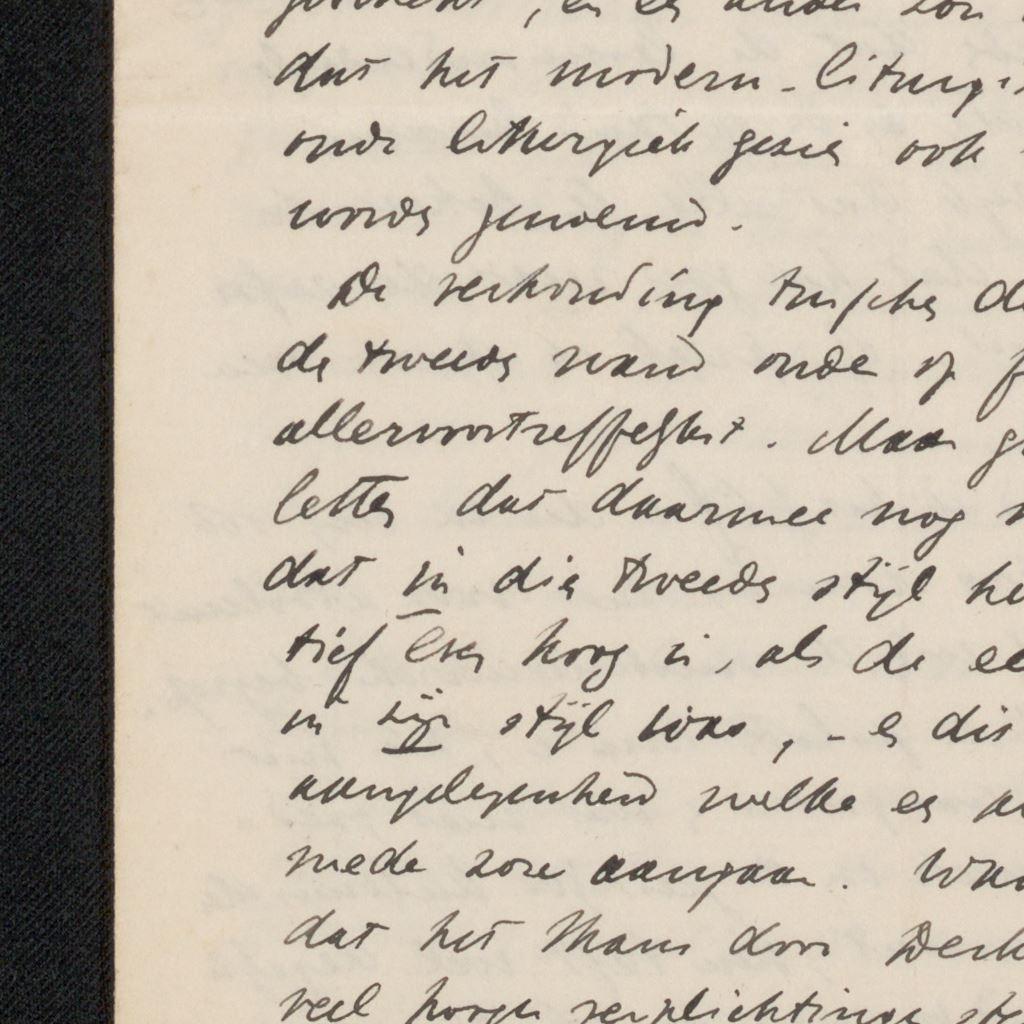 dat het modern-liturgi
oude liturgiek gezien ook
worden genoemd.
De verhouding tusschen d
de tweede wand onder op
allervoortreffelijkst. Maar
letten dat daarmee nog
dat in die tweede stijl he
tief even hoog is, als de ee
in zijn stijl was, - en die
aangelegenheid welke en
mede zou aangaan.
dat het thans door Derk
veel hooge verplichtingen